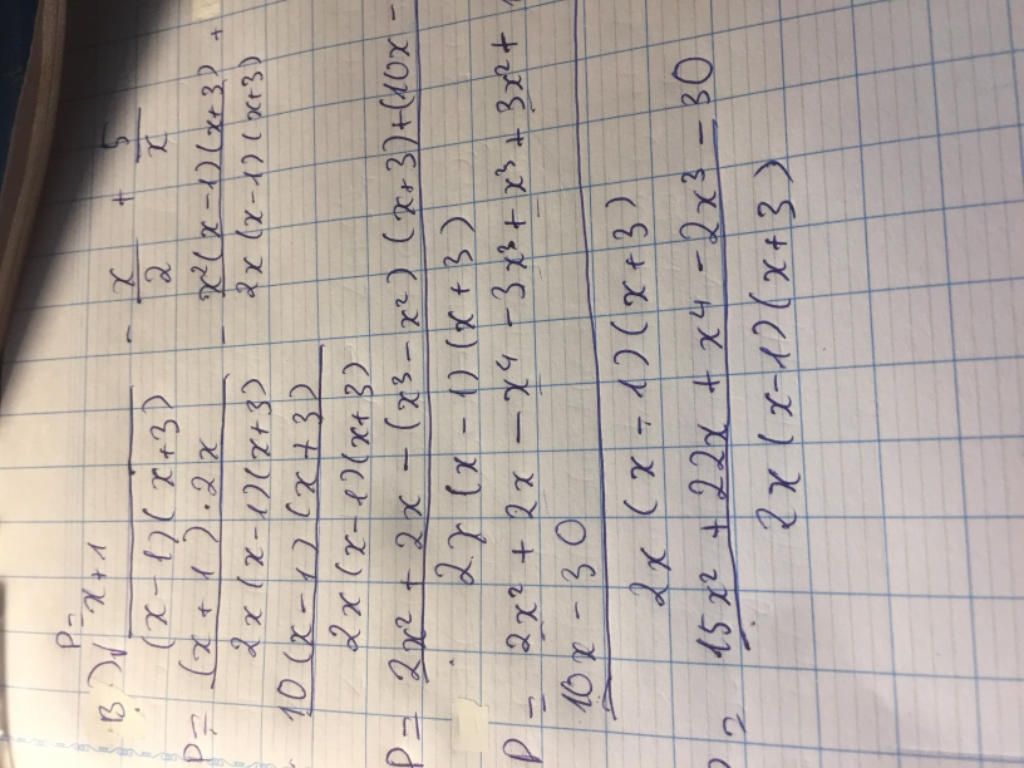 P=
B) x+1 - x + 5
(x-1)(x+3) 2 x
P= (x+1).2x - x²(x-1)(x+3) +
2x(x-1)(x+3) 2x(x-1)(x+3)
10(x-1)(x+3)
2x(x-1)(x+3)
P= 2x²+2x-(x³-x²)(x+3)+(10x-
2x(x-1)(x+3)
P= 2x²+2x-x⁴-3x³+x³+3x²+
10x-30
2x(x-1)(x+3)
= 15x²+22x+x⁴-2x³-30
2x(x-1)(x+3)